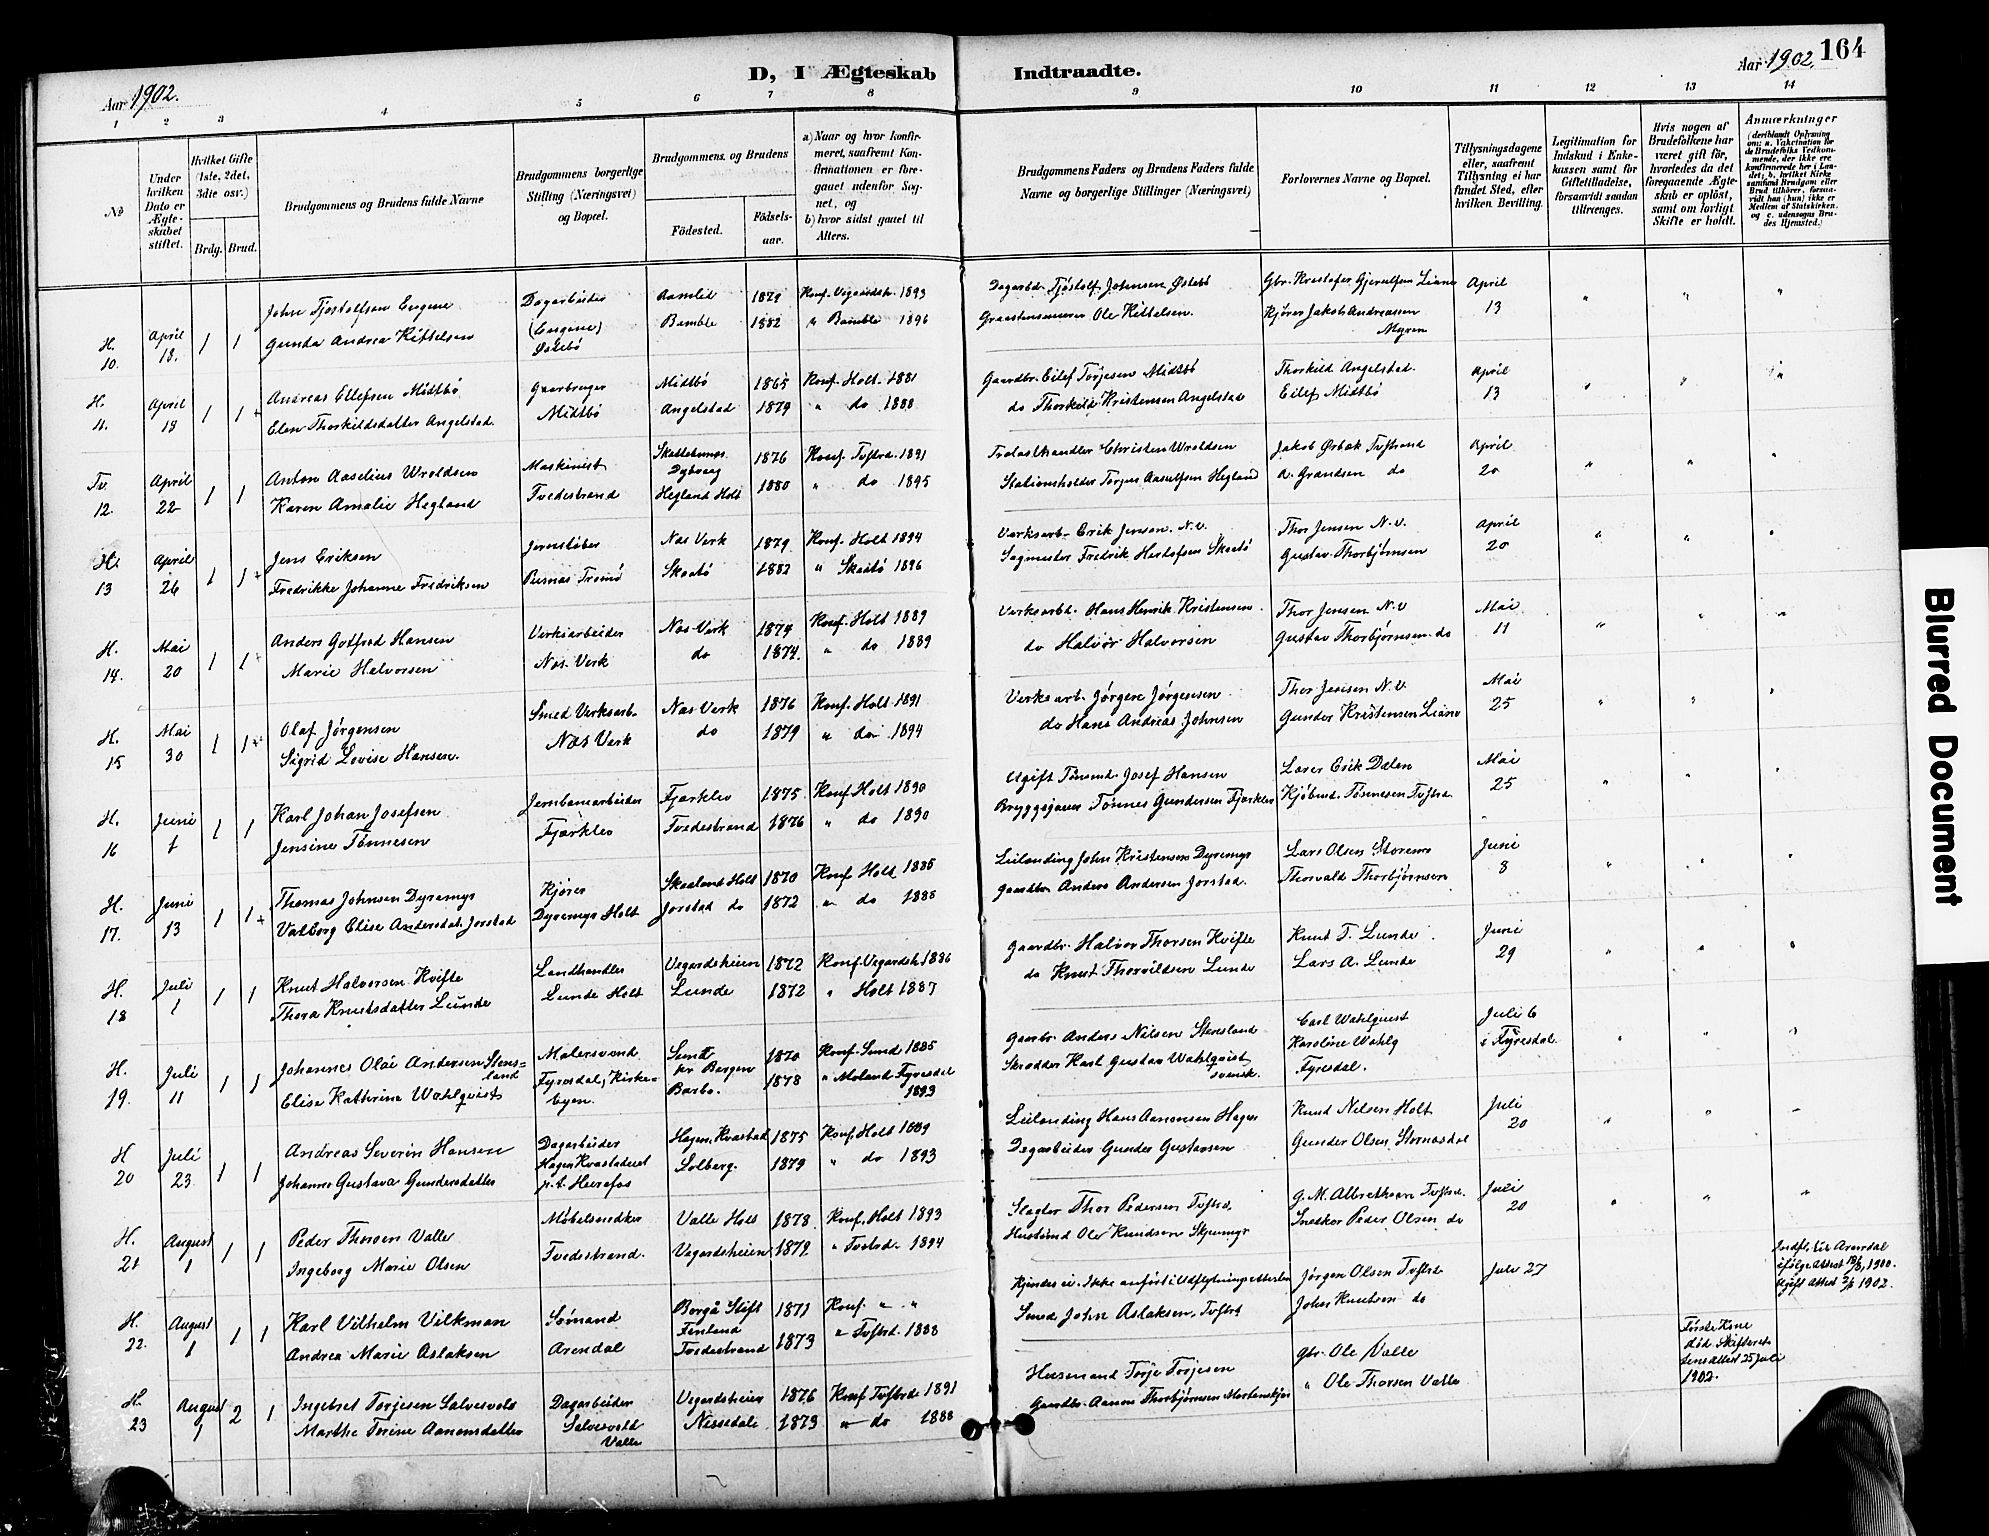 Aar 1902.
D, I Ægteskab
Indtraadte.
Aar 1902.
164
1 2 3 4 5 6 7 8 9 10 11 12 13 14
No
Under hvilken Dato er Ægteskabet stiftet.
Hvilket Gifte (1ste, 2det, 3die osv.)
Brdg. Brud.
Brudgommens og Brudens fulde Navne
Brudgommens borgerlige Stilling (Næringsvei) og Bopæl.
Brudgommens og Brudens
Födested.
Födsels-aar.
a) Naar og hvor konfirmeret, saafremt Konfirmationen er foregaaet udenfor Sognet, og
b) hvor sidst gaaet til Alters.
Brudgommens Faders og Brudens Faders fulde Navne og borgerlige Stillinger (Næringsvei)
Forlovernes Navne og Bopæl.
Tillysningsdagene eller, saafremt Tillysning ei har fundet Sted, efter hvilken Bevilling.
Legitimation for Indskud i Enkekassen samt for Giftetilladelse, forsaavidt saadan tiltrænges.
Hvis nogen af Brudefolkene har været gift för, hvorledes da det foregaaende Ægteskab er oplöst, samt om lovligt Skifte er holdt.
Anmærkninger
(deriblandt Oplysning om: a. Vakcination for de Brudefolks Vedkommende, der ikke ere konfirmerede her i Landet; b. hvilket Kirkesamfund Brudgom eller Brud tilhörer, forsaavidt han (hun) ikke er Medlem af Statskirken, og c. udensogns Brudes Hjemsted.)
H. 10. April 18. 1 1 John Tjøstolfsen Eugene Dagarbeider Aamlid 1879 Konf. Vegaardsh. 1893 Dagarbd. Tjøstolf Johnsen Østebø Gbr. Kristofer Gjerulfsen Liane April 13 " " "
Gunda Andrea Kittelsen (Eugene) Østebø Bamble 1882 " Bamble 1896 Ole Kittelsen. Kjører Jakob Andreassen Myren
H. 11. April 18 1 1 + Andreas Ellefsen Midtbø Midtbø 1865 Konf. Holt. 1881 Gaardbr. Eilef Torjesen Midtbø Thorkild Angelstad. April 13 " " "
Elen Thorkildsdatter Angelstad. Midtbø Angelstad 1879 " do 1888 do Thorkild Kristensen Angelstad Eilef Midtbø
Tv. 12. April 22 1 1 Anton Aaselius Wroldsen Maskinist Dybvaag 1876 Konf. Tvstrd. 1891 Trælasthandler Christen Wroldsen Jakob Ørbæk Tvstrand April 20 " " "
Karen Amalie Hegland Tvedestrand Hegland Holt 1880 " do 1895 Stationsholder Torjus Aasulfsen Hegland A. Grandsen do
H. 13 April 26 1 1 + Jens Eriksen Jernstøber Næs Verk 1879 Konf. Holt 1894 Verksarb. Erik Jensen. N.v. Thor Jensen N.v. April 20 " " "
Fredrikke Johanne Fredriksen Pusnæs Tromø Skaatø 1882 " Skaatø 1896 Sagmester Fredrik Herlofsen Skaatø Gustav Thorbjørnsen
H. 14. Mai 20 1 1 + Anders Gotfred Hansen Verksarbeider Næs Verk 1874 Konf. Holt 1889 Verksarbd. Hans Henrik Kristensen. Thor Jensen N.v Mai 11 " " "
Marie Halvorsen Næs Verk do 1874. " do 1889 do Halvor Halvorsen Gustav Thorbjørnsen do
H. 15 Mai 30 1 1 Olaf Jørgensen Smed Verksarb. Næs Verk 1876 Konf. Holt 1891 Verksarb. Jørgen Jørgensen Thor Jensen N.v. Mai 25 " " "
Sigrid Lovise Hansen. Næs Verk do 1879 " do 1894 do Hans Andreas Johnsen Gunder Kristensen Liane
H. 16 Juni 1 1 1 Karl Johan Josefsen Jernbanearbeider Fjærklev 1875. Konf. Holt 1890 Ugift Tømmd. Josef Hansen Lærer Erik Dalen Mai 25 " " "
Jensine Tønnesen Fjærklev Tvedestrand 1876 " do 1890 Bryggesjauer Tønnes Gundersen Fjærklev Kjøbmd. Tønnesen Tvstrd.
H. 17. Juni 13 1 1 + Thomas Johnsen Dyremyr Kjører Skaaland Holt 1870 Konf. Holt 1885 Leilænding John Kristensen Dyremyr Lars Olsen Juni 8 " " "
Valborg Elise Andersdat. Jorstad Dyremyr Holt Jorstad do 1872 " do 1888 Gaardbr. Anders Andersen Jorstad. Thorvald Thorbjørnsen
H. 18 Juli 1 1 1 Knut Halvorsen Kvifte Landhandler Vegardsheien 1872 Konf. Vegardsh. 1886 Gaardbr. Halvor Thorsen Kvifte Knut T. Lunde Juni 29 " " "
Thora Knutsdatter Lunde Lunde Holt Lunde 1872 " Holt 1887 do Knut Thorvildsen Lunde Lars A. Lunde
H. 19. Juli 11 1 1 Johannes Olai Andersen Stensland Malersvend Sund pr Bergen 1870 Konf. Sund 1885 Gaardbr. Anders Nilsen Stensland Carl Wahlquist Juli 6 i Fyresdal. " " "
Elise Kathrine Wahlquist Fyresdal, Kirkebyen. Barbo. 1878 " Moland Fyresdal 1893 Skrædder Karl Gustav Wahlqvist svensk. Karoline Wahlq Fyresdal.
H 20 Juli 23 1 1 Andreas Severin Hansen Dagarbeider Hagen, Kvastad 1875 Konf. Holt 1889 Leilænding Hans Aanonsen Hagen Knud Nilsen Holt Juli 20 " " "
Johanne Gustava Gundersdatter Hagen Kvastadeiet p.t. Herefos Solberg. 1879 " do 1893 Dagarbeider Gunder Gustavsen Gunder Olsen
H. 21 August 1 1 1 Peder Thorsen Valle Møbelsnedker Valle Holt 1878. Konf. Holt 1893 Slagter Thor Pedersen Tvstrd. G. M. Albrethsen Tvstrd. Juli 20 " " "
Ingeborg Marie Olsen Tvedestrand. Vegardsheien 1879 " Tvstrd. 1894 Husmand Ole Knudsen Snedker Peder Olsen do
H. 22. August 1 1 1 Karl Vilhelm Vilkman Sømand Borgå Stift Finland 1871 Konf. " " Kjendes ei. Ikke anført i Udflytningsattesten Jørgen Olsen Tvstrd Juli 27 Indfl. til Arendal ifølge Attest 1900. Ugift Attest 1902.
Andrea Marie Aslaksen Arendal Tvedestrand 1873 " Tvstrd. 1888 Smed John Aslaksen, Tvstrd John Knutsen do
H. 23 August 1 2 1 Ingebret Torjesen Salvesvold Dagarbeider Vegardsheien 1876 Konf Tvstrd. 1891 Husmand Torje Torjesen Gbr. Ole Valle Første Kone død Skifterettens Attest 25 Juli 1902.
Marthe Torine Aanonsdatter Salvesvold Valle Nissedale 1873 " do 1888 Gaardbr. Aanon Thorbjørnsen " Ole Thorsen Valle
Blurred Document